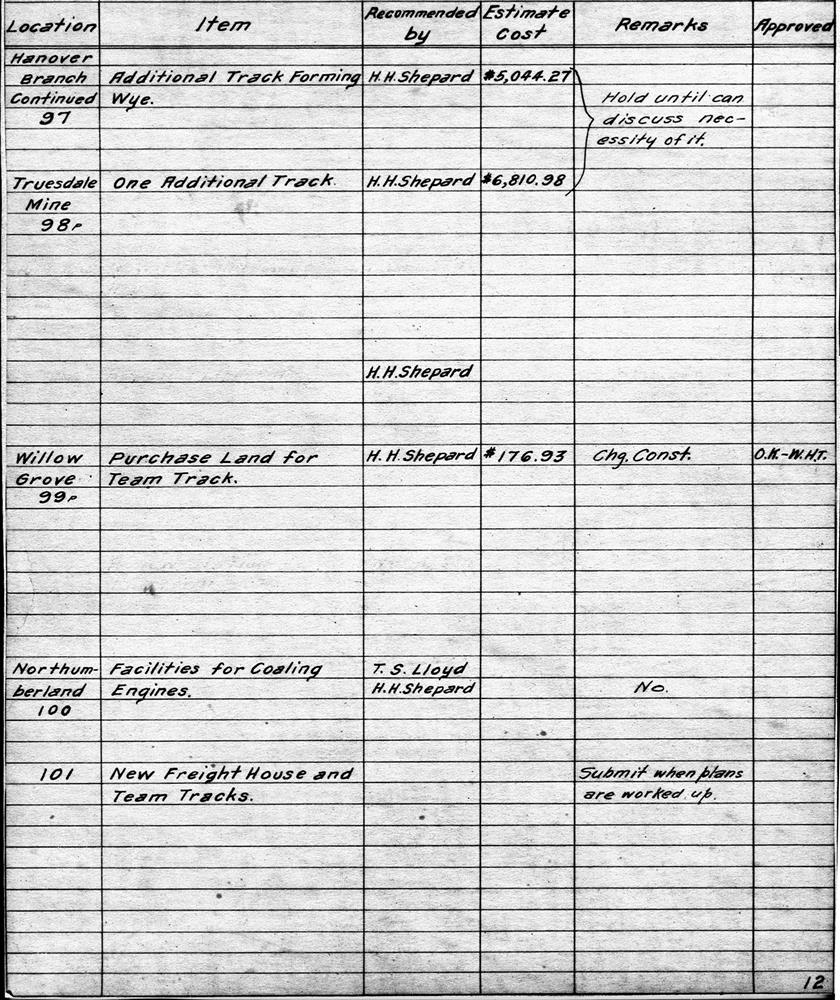 Location Item Recommended by Estimate Cost Remarks Approved
Hanover
Branch Additional Track Forming H.H.Shepard $5,044.27
Continued Wye. Hold until can
97 discuss nec-
essity of it.
Truesdale One Additional Track. H.H.Shepard $6,810.98
Mine
98P
H.H.Shepard
Willow Purchase Land for H.H.Shepard $176.93 Chg. Const. O.K.-W.H.T.
Grove Team Track.
99P
Northum- Facilities for Coaling T. S. Lloyd
berland Engines. H.H.Shepard No.
100
101 New Freight House and Submit when plans
Team Tracks. are worked up.
12